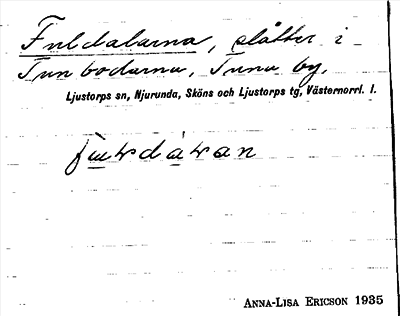 Fuldalarna, slåtter i
Tunbodarna, Tuna by.
Ljustorps sn, Njurunda, Sköns och Ljustorps tg, Västernorrl. l.
ANNA-LISA ERICSON 1935